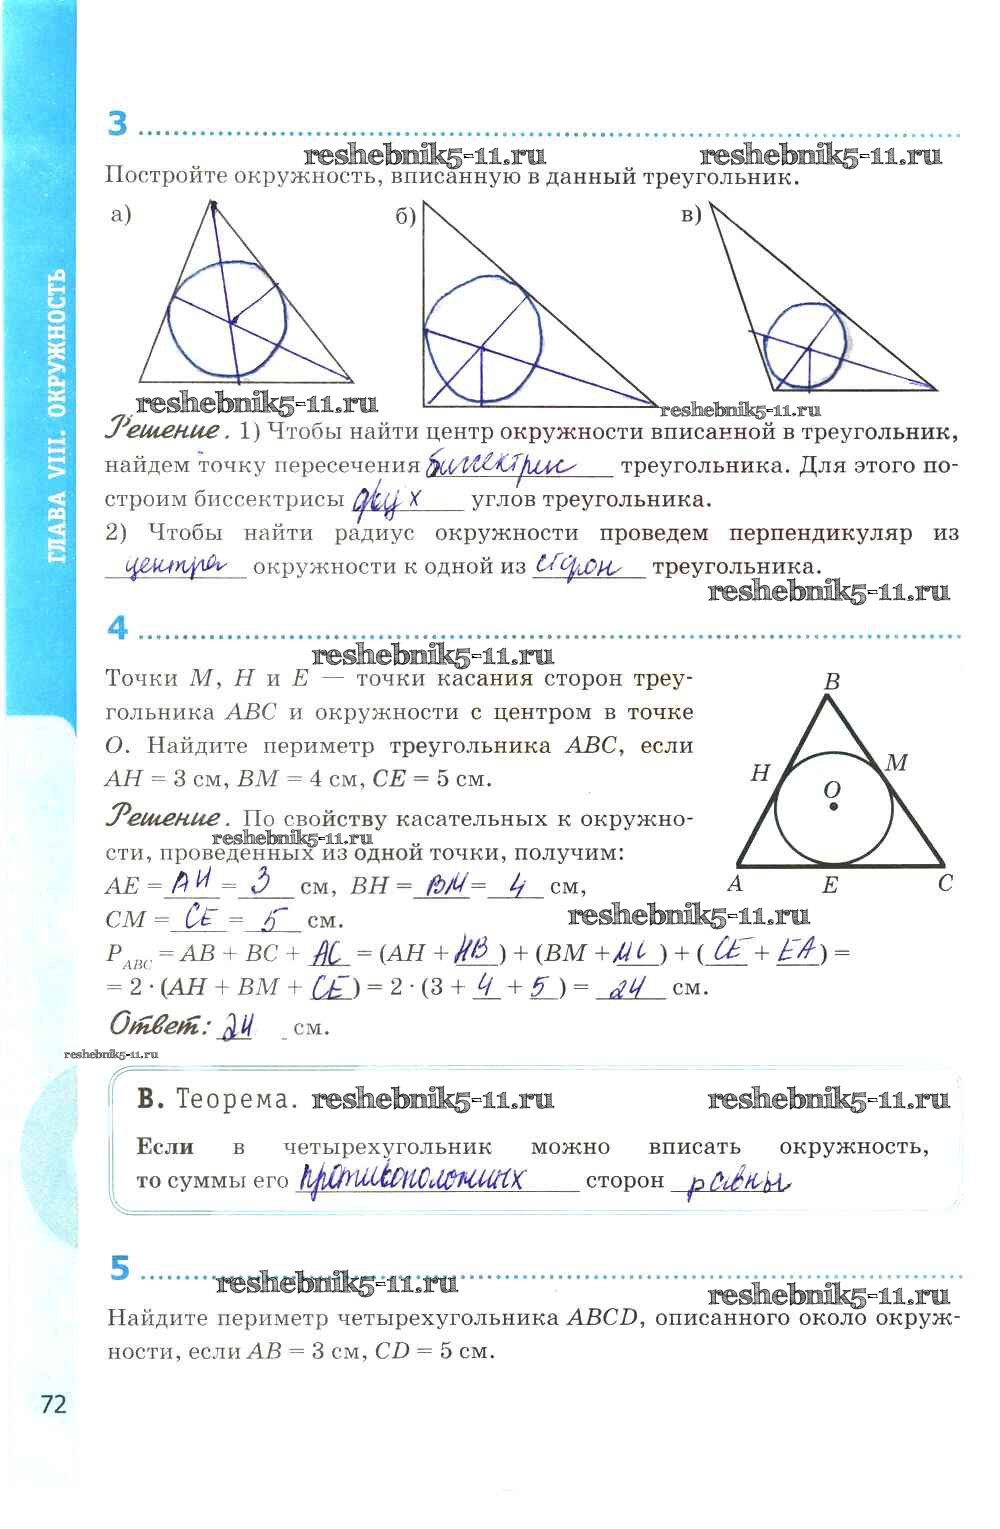 ГЛАВА VIII. ОКРУЖНОСТЬ
3
reshebnik5-11.ru reshebnik5-11.ru
Постройте окружность, вписанную в данный треугольник.
а) б) в)
reshebnik5-11.ru reshebnik5-11.ru
Решение. 1) Чтобы найти центр окружности вписанной в треугольник,
найдем точку пересечения биссектрис треугольника. Для этого по-
строим биссектрисы двух углов треугольника.
2) Чтобы найти радиус окружности проведем перпендикуляр из
центра окружности к одной из сторон треугольника.
reshebnik5-11.ru
4
reshebnik5-11.ru
Точки M, H и E — точки касания сторон треу-
гольника ABC и окружности с центром в точке
O. Найдите периметр треугольника ABC, если
AH = 3 см, BM = 4 см, CE = 5 см.
B
H M
O
A E C
Решение. По свойству касательных к окружно-
reshebnik5-11.ru
сти, проведенных из одной точки, получим:
AE = AH = 3 см, BH = BM = 4 см,
CM = CE = 5 см.
reshebnik5-11.ru
P ABC = AB + BC + AC = (AH + HB) + (BM + MC) + (CE + EA) =
= 2 · (AH + BM + CE) = 2 · (3 + 4 + 5) = 24 см.
Ответ: 24 см.
reshebnik5-11.ru
В. Теорема. reshebnik5-11.ru reshebnik5-11.ru
Если в четырехугольник можно вписать окружность,
то суммы его противоположных сторон равны
5
reshebnik5-11.ru reshebnik5-11.ru
Найдите периметр четырехугольника ABCD, описанного около окруж-
ности, если AB = 3 см, CD = 5 см.
72